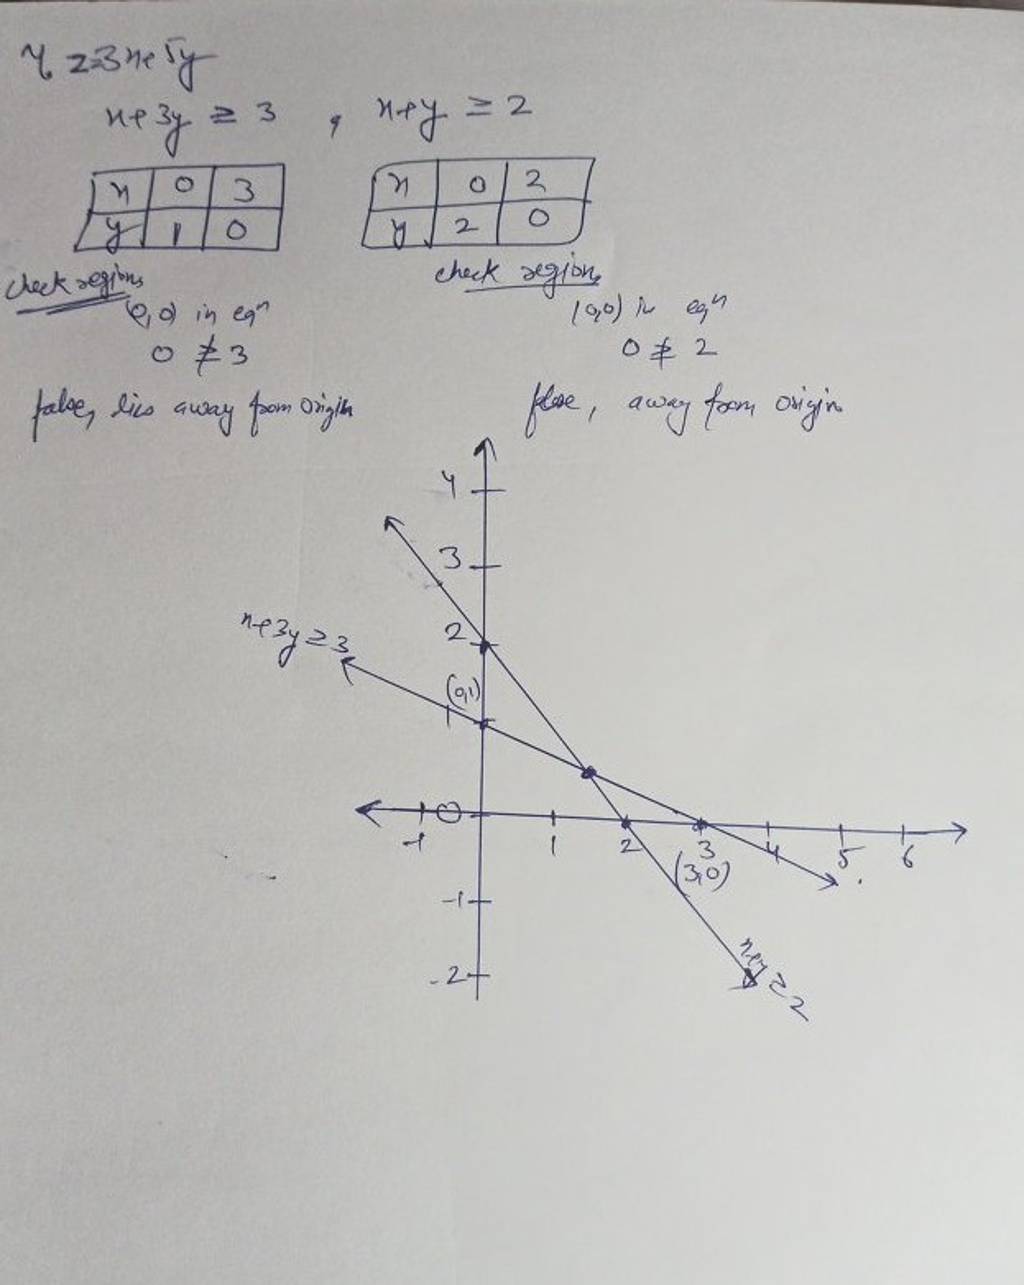 4. z=3x+5y
x+3y ≥ 3 , x+y ≥ 2
x 0 3
y 1 0
x 0 2
y 2 0
check region,
(0,0) in eqⁿ
0 ≱ 3
false, lies away from origin
check region,
(0,0) in eqⁿ
0 ≱ 2
false, away from origin
4
3
x+3y ≥ 3
2
(0,1)
1
0
-1 1 2 3 4 5 6
(3,0)
-1
x+y ≥ 2
-2